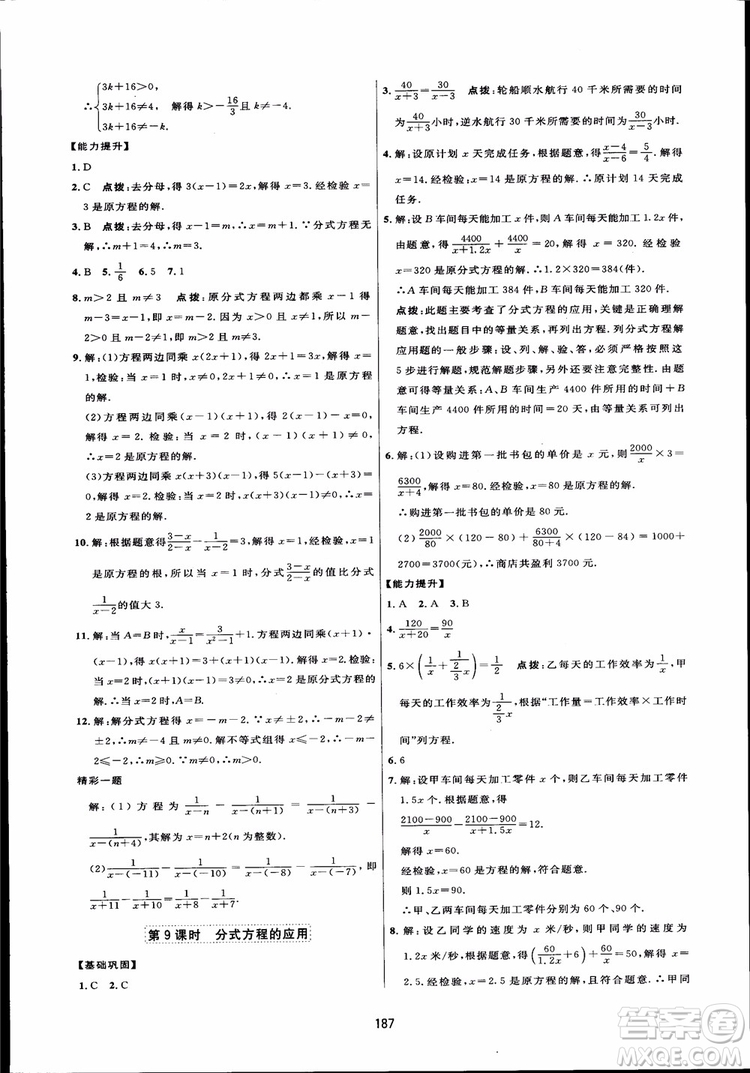 ∴{3k+16>0, 3k+16≠4, 3k+16≠-4. 解得 k>-16/3 且 k≠-4.
【能力提升】
1. D
2. C 点拨:去分母,得 3(x-1)=2x,解得 x=3.经检验 x=
3 是原方程的解.
3. B 点拨:去分母,得 x-1=m,∴x=m+1.∵分式方程无
解,∴m+1=4,∴m=3.
4. B 5. 1/6 6. 5 7. 1
8. m>2 且 m≠3 点拨:原分式方程两边都乘 x-1 得
m-3=x-1,即 x=m-2.∵x>0 且 x≠1,∴m-
2>0 且 m-2≠1,∴m>2 且 m≠3.
9. 解:(1)方程两边同乘 x(x+1)得 2x=x+1.解得 x=
1,检验:当 x=1 时,x(x+1)≠0,∴x=1 是原方程
的解.
(2)方程两边同乘(x-1)(x+1)得
解得 x=2.检验:当 x=2 时,(x-1)(x+1)≠
0,∴x=2 是原方程的解.
(3)方程两边同乘 x(x+3)得
x=2.检验:当 x=2 时,x(x+3)≠
0,∴x=2 是原方程的解.
10. 解:根据题意得 3-x/2-x - 1/x-2 =3,解得 x=1.经检验,x=1
是原方程的解,所以当 x=1 时,分式 3-x/2-x 的值比分式
1/x-2 的值大 3.
11. 解:当 A=B 时,x/x-1 = 3/x²-1 +1.方程两边同乘(x+1)·
(x-1),得 x(x+1)=3+(x+1)(x-1).解得 x=2.检
验:当 x=2 时,(x+1)(x-1)≠0,∴x=2 是分式方程的
根.因此,当 x=2 时,A=B.
12. 解:解分式方程得 x=-m-2.∵x≠±2,∴m≠-4 且
m≠0.∵-m-2≥0,∴m≤-2.解不等式组得 m>-
2≤-2.∴
精彩一题
解:(1)方程为 1/x-n - 1/x-(n+1) =
1/x-(n+4) ,解为 x=n+2(n 为整数).
(2) 1/x-(-11) - 1/x-(-10) = 1/x-(-8) - 1/x-(-7) ,即
1/x+11
第 9 课时 分式方程的应用
【基础巩固】
1. C 2. C
3. 40/x+3 = 30/x-3 点拨:轮船顺水航行 40 千米所需的时间
为 40/x+3 小时,逆水航行 30 千米所需的时间为 30/x-3 小时.
4. 解:设原计划 x 天完成任务.根据题意,得 x-4/x-6 = 5/4.解
得 x=14.经检验:x=14 是原方程的解.∴原计划 14 天完成
任务.
5. 解:设 B 车间每天能加工 x 件,则 A 车间每天能加工 1.2x 件,
由题意,得 4400/x+1.2x + 4400/x =20,解得 x=320.经检验
x=320 是原分式方程的解.∴1.2×320=384(件).
∴A 车间每天能加工 384 件,B 车间每天能加工 320 件.
点拨:此题主要考查了分式方程的应用,关键是正确理解
题意,找出题目中的等量关系,再列出方程.列分式方程解
应用题的一般步骤:设、列、解、验、答,必须严格按照这
5 步进行解题,规范解题步骤,另外还要注意完整性.根据
题意可得等量关系:A、B 车间生产 4400 件所用的时间+B
车间生产 4400 件所用的时间=20 天,由等量关系可列出
方程.
6. 解:(1)设购进第一批书包的单价是 x 元,则 2000/x ×3=
6300/x+4 ,解得 x=80.经检验,x=80 是原方程的解.
∴购进第一批书包的单价是 80 元.
(2) 2000/80 ×(120-80)+ 6300/80+4 ×(120-84)=1000+
2700=3700(元),∴商店共盈利 3700 元.
【能力提升】
1. A 2. A 3. B
4. 120/x+20 = 90/x
5. 6×(1/x + 1/(2/3)x)= 1/2 点拨:乙每天的工作效率为 1/x,甲
每天的工作效率为 1/(2/3)x,根据“工作量=工作效率×工作时
间”列方程.
6. 6
7. 解:设甲车间每天加工零件 x 个,则乙车间每天加工零件
1.5x 个.根据题意,得
2100-900/x - 2100-900/x+1.5x =12.
解得 x=60.
经检验,x=60 是方程的解,符合题意.
则 1.5x=90.
∴甲、乙两车间每天加工零件分别为 60 个、90 个.
8. 解:设乙同学的速度为 x 米/秒,则甲同学的速度为
1.2x 米/秒.根据题意,得(60/1.2x +6)+ 60/x =50.解得 x=
2.5.经检验,x=2.5 是原方程的解,且符合题意.∴甲同
187
答案卷
MXQE.COM